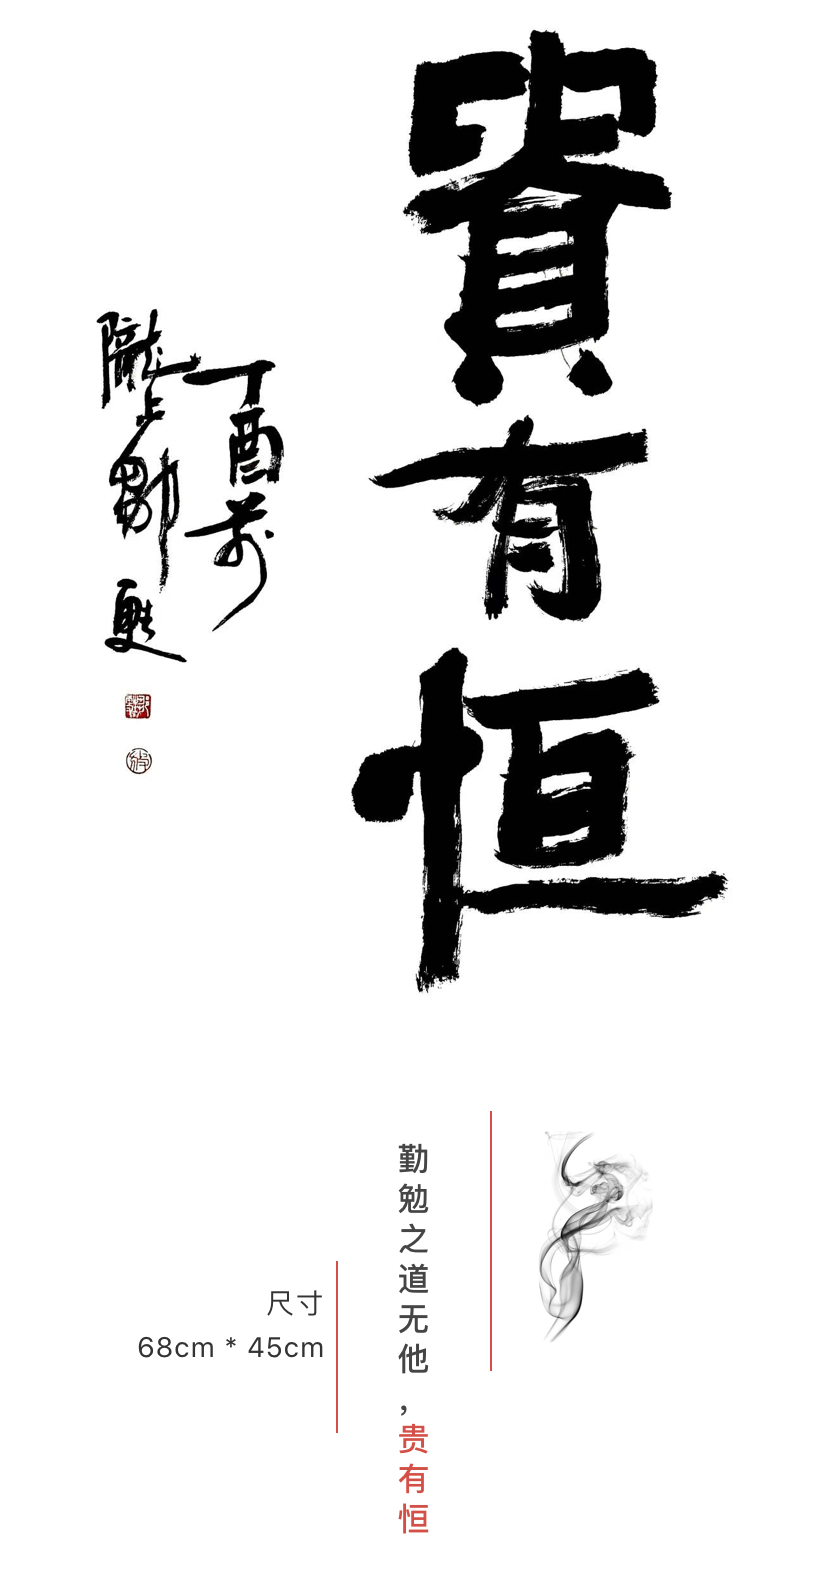 貴有恒
丁酉前
隴上鄒
尺寸
68cm * 45cm
勤勉之道无他，贵有恒